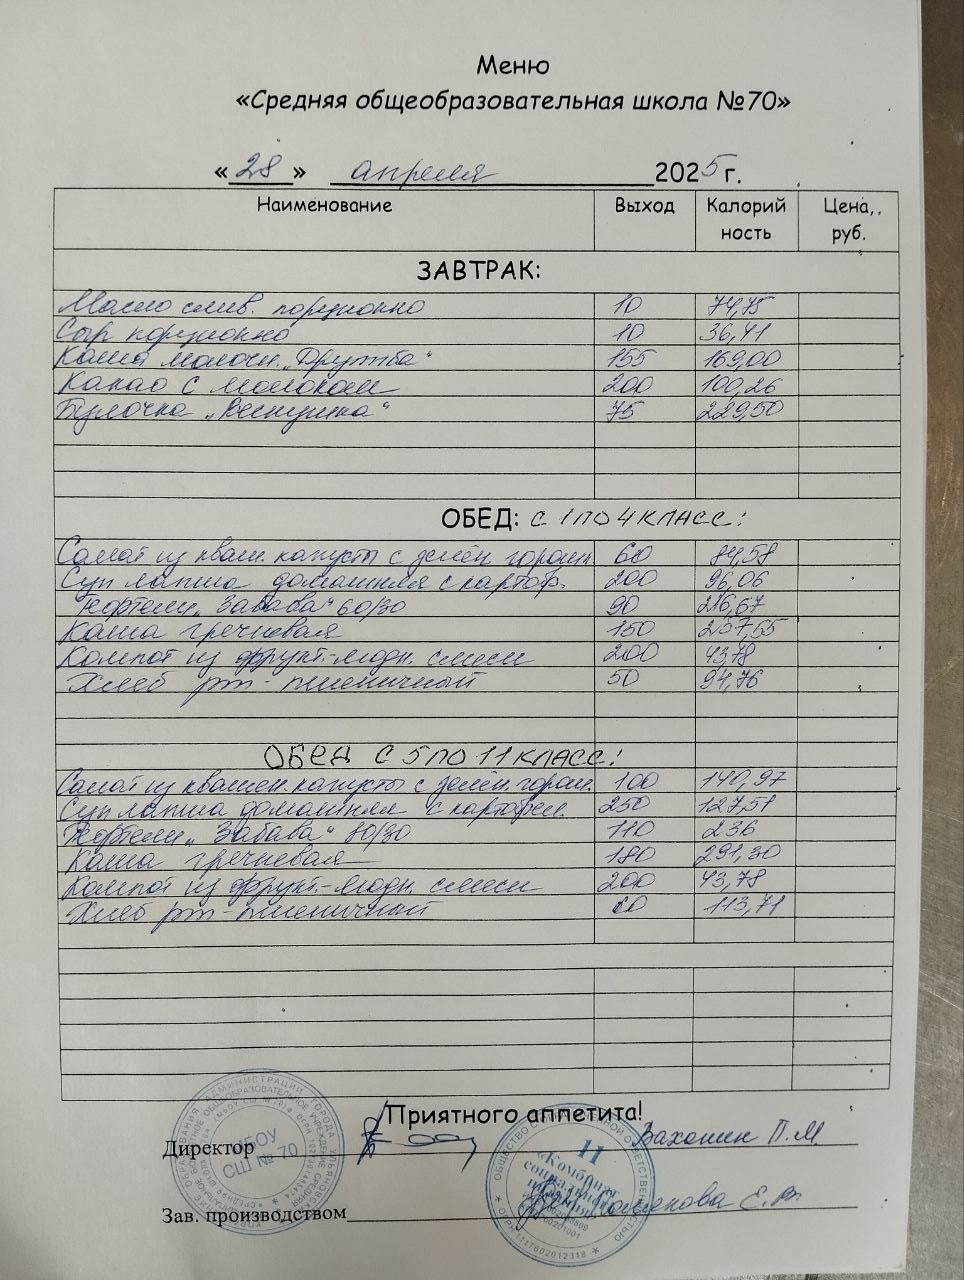 Меню
«Средняя общеобразовательная школа №70»
«28» апреля 2025 г.
Наименование Выход Калорий ность Цена, руб.
ЗАВТРАК:
Масло слив. порционно 10 74,75
Сыр порционно 10 36,41
Каша молочн. "Дружба" 155 169,00
Какао с молоком 200 100,26
Булочка "Веснушка" 75 229,50
ОБЕД: С 1 ПО 4 КЛАСС:
Салат из кваш. капусты с зелён. горошк. 60 84,58
Суп лапша домашняя с картоф. 200 96,06
Тефтели "Забава" 60/30 90 216,67
Каша гречневая 150 257,55
Компот из фрукт.-ягодн. смеси 200 43,78
Хлеб рж-пшеничный 50 94,76
ОБЕД С 5 ПО 11 КЛАСС:
Салат из квашен. капусты с зелён. горош. 100 140,97
Суп лапша домашняя с картофел. 250 127,51
Тефтели "Забава" 80/30 110 236
Каша гречневая 180 291,30
Компот из фрукт.-ягодн. смеси 200 43,78
Хлеб рж-пшеничный 60 113,71
Приятного аппетита!
Директор Вахонин П.М
МБОУ
СШ № 70
11
«Комбинат
социального
питания»
Зав. производством Е.В